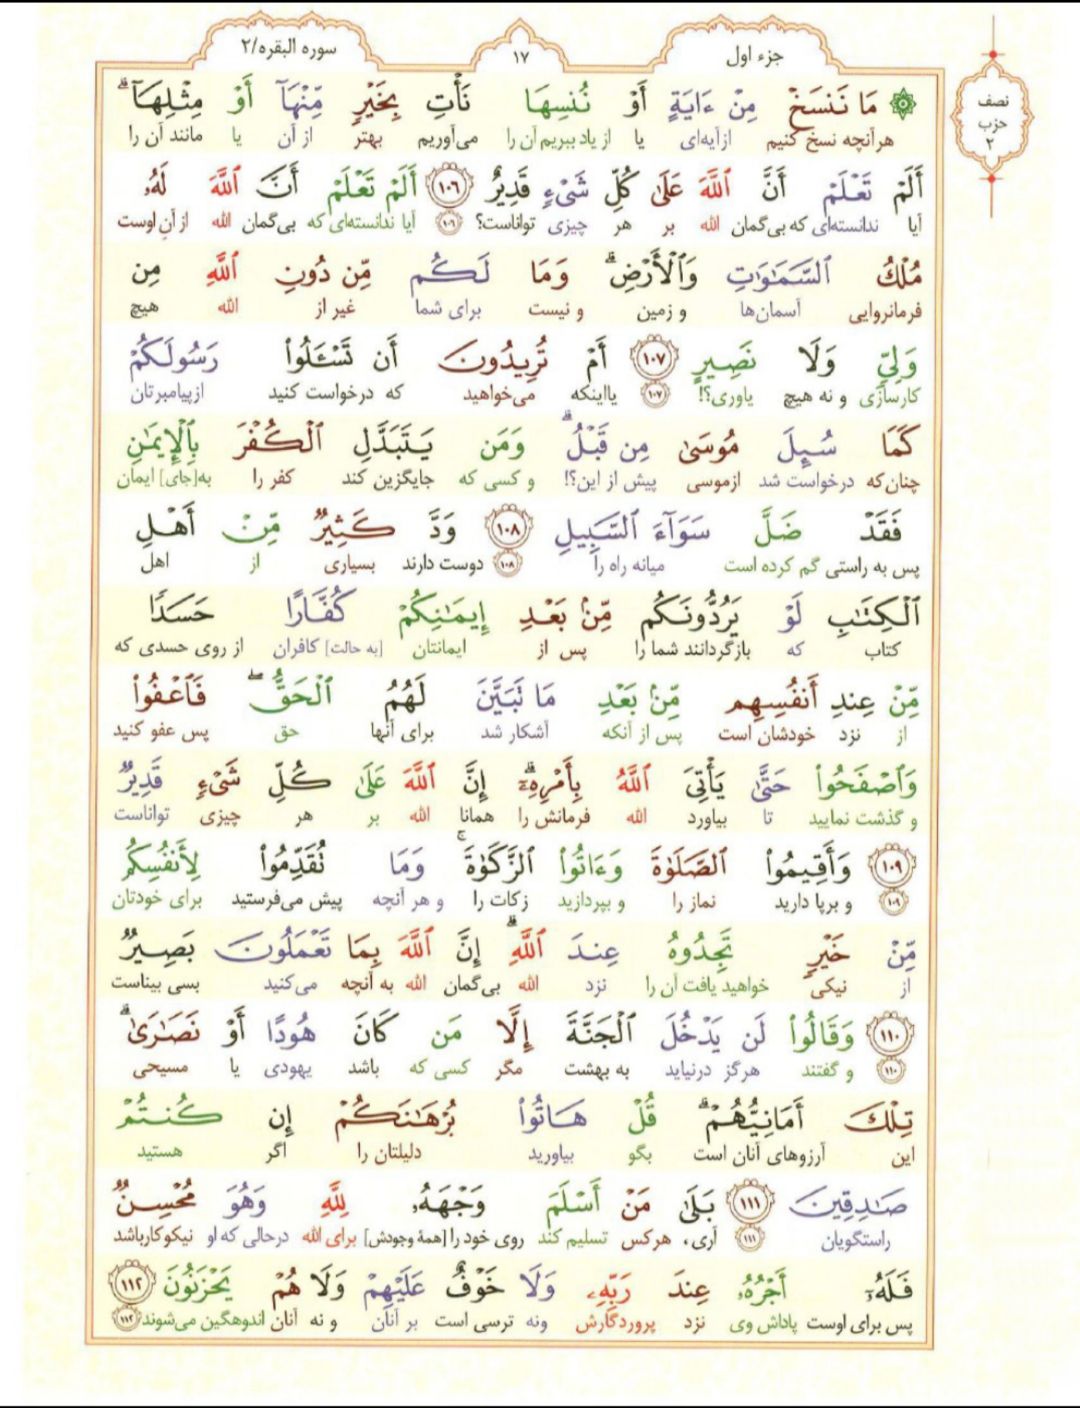 سوره البقره/۲
۱۷
جزء اول
نصف
حزب
۲
مَا نَنسَخۡ مِنۡ ءَايَةٍ أَوۡ نُنسِهَا نَأۡتِ بِخَيۡرٖ مِّنۡهَآ أَوۡ مِثۡلِهَآۗ
هرآنچه نسخ کنیم ازآیه‌ای یا از یاد ببریم آن را می‌آوریم بهتر از آن یا مانند آن را
أَلَمۡ تَعۡلَمۡ أَنَّ ٱللَّهَ عَلَىٰ كُلِّ شَيۡءٖ قَدِيرٌ ١٠٦ أَلَمۡ تَعۡلَمۡ أَنَّ ٱللَّهَ لَهُۥ
آیا ندانسته‌ای که بی‌گمان الله بر هر چیزی تواناست؟ ۱۰۶ آیا ندانسته‌ای که بی‌گمان الله از آنِ اوست
مُلۡكُ ٱلسَّمَٰوَٰتِ وَٱلۡأَرۡضِۗ وَمَا لَكُم مِّن دُونِ ٱللَّهِ مِن
فرمانروایی آسمان‌ها و زمین و نیست برای شما غیر از الله هیچ
وَلِيّٖ وَلَا نَصِيرٍ ١٠٧ أَمۡ تُرِيدُونَ أَن تَسۡـَٔلُواْ رَسُولَكُمۡ
کارسازی و نه هیچ یاوری؟! ۱۰۷ یااینکه می‌خواهید که درخواست کنید ازپیامبرتان
كَمَا سُئِلَ مُوسَىٰ مِن قَبۡلُۗ وَمَن يَتَبَدَّلِ ٱلۡكُفۡرَ بِٱلۡإِيمَٰنِ
چنان‌که درخواست شد ازموسی پیش از این؟! و کسی که جایگزین کند کفر را به[جای] ایمان
فَقَدۡ ضَلَّ سَوَآءَ ٱلسَّبِيلِ ١٠٨ وَدَّ كَثِيرٞ مِّنۡ أَهۡلِ
پس به راستی گم کرده است میانه راه را ۱۰۸ دوست دارند بسیاری از اهل
ٱلۡكِتَٰبِ لَوۡ يَرُدُّونَكُم مِّنۢ بَعۡدِ إِيمَٰنِكُمۡ كُفَّارًا حَسَدٗا
کتاب که بازگردانند شما را پس از ایمانتان [به حالت] کافران از روی حسدی که
مِّنۡ عِندِ أَنفُسِهِم مِّنۢ بَعۡدِ مَا تَبَيَّنَ لَهُمُ ٱلۡحَقُّۖ فَٱعۡفُواْ
از نزد خودشان است پس از آنکه آشکار شد برای آنها حق پس عفو کنید
وَٱصۡفَحُواْ حَتَّىٰ يَأۡتِيَ ٱللَّهُ بِأَمۡرِهِۦٓۗ إِنَّ ٱللَّهَ عَلَىٰ كُلِّ شَيۡءٖ قَدِيرٞ
و گذشت نمایید تا بیاورد الله فرمانش را همانا الله بر هر چیزی تواناست
١٠٩ وَأَقِيمُواْ ٱلصَّلَوٰةَ وَءَاتُواْ ٱلزَّكَوٰةَۚ وَمَا تُقَدِّمُواْ لِأَنفُسِكُم
۱۰۹ و برپا دارید نماز را و بپردازید زکات را و هر آنچه پیش می‌فرستید برای خودتان
مِّنۡ خَيۡرٖ تَجِدُوهُ عِندَ ٱللَّهِۗ إِنَّ ٱللَّهَ بِمَا تَعۡمَلُونَ بَصِيرٞ
از نیکی خواهید یافت آن را نزد الله بی‌گمان الله به آنچه می‌کنید بسی بیناست
١١٠ وَقَالُواْ لَن يَدۡخُلَ ٱلۡجَنَّةَ إِلَّا مَن كَانَ هُودًا أَوۡ نَصَٰرَىٰۗ
۱۱۰ و گفتند هرگز درنیاید به بهشت مگر کسی که باشد یهودی یا مسیحی
تِلۡكَ أَمَانِيُّهُمۡۗ قُلۡ هَاتُواْ بُرۡهَٰنَكُمۡ إِن كُنتُمۡ
این آرزوهای آنان است بگو بیاورید دلیلتان را اگر هستید
صَٰدِقِينَ ١١١ بَلَىٰ مَنۡ أَسۡلَمَ وَجۡهَهُۥ لِلَّهِ وَهُوَ مُحۡسِنٞ
راستگویان ۱۱۱ آری، هرکس تسلیم کند روی خود را [همهٔ وجودش] برای الله درحالی که او نیکوکارباشد
فَلَهُۥٓ أَجۡرُهُۥ عِندَ رَبِّهِۦ وَلَا خَوۡفٌ عَلَيۡهِمۡ وَلَا هُمۡ يَحۡزَنُونَ ١١٢
پس برای اوست پاداش وی نزد پروردگارش ونه ترسی است بر آنان و نه آنان اندوهگین می‌شوند ۱۱۲